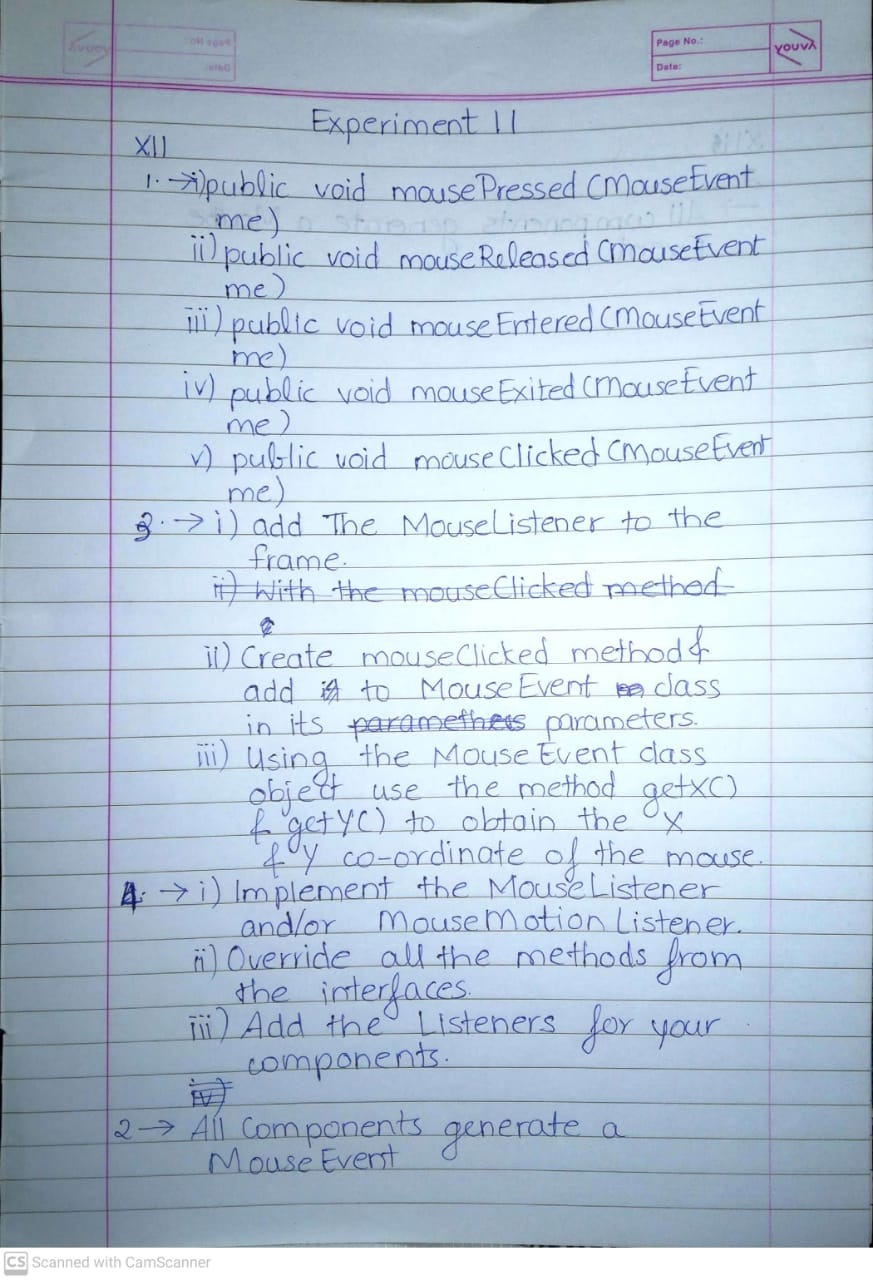 Page No.:
Date:
YOUVA
Experiment 11
XII
1. → i) public void mousePressed (MouseEvent
me)
ii) public void mouseReleased (MouseEvent
me)
iii) public void mouseEntered (MouseEvent
me)
iv) public void mouseExited (MouseEvent
me)
v) public void mouseClicked (MouseEvent
me)
3. → i) add The MouseListener to the
frame.
ii) With the mouseClicked method
ii) Create mouseClicked method &
add it to MouseEvent class
in its paramethers parameters.
iii) Using the MouseEvent class
object use the method getX()
& getY() to obtain the X
& Y co-ordinate of the mouse.
4. → i) Implement the MouseListener
and/or MouseMotionListener.
ii) Override all the methods from
the interfaces.
iii) Add the Listeners for your
components.
iv)
2 → All Components generate a
MouseEvent
CS Scanned with CamScanner